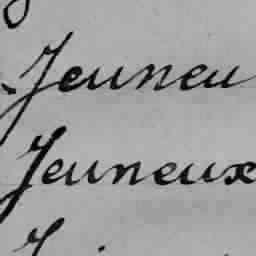 Jeuneu
Jeuneux